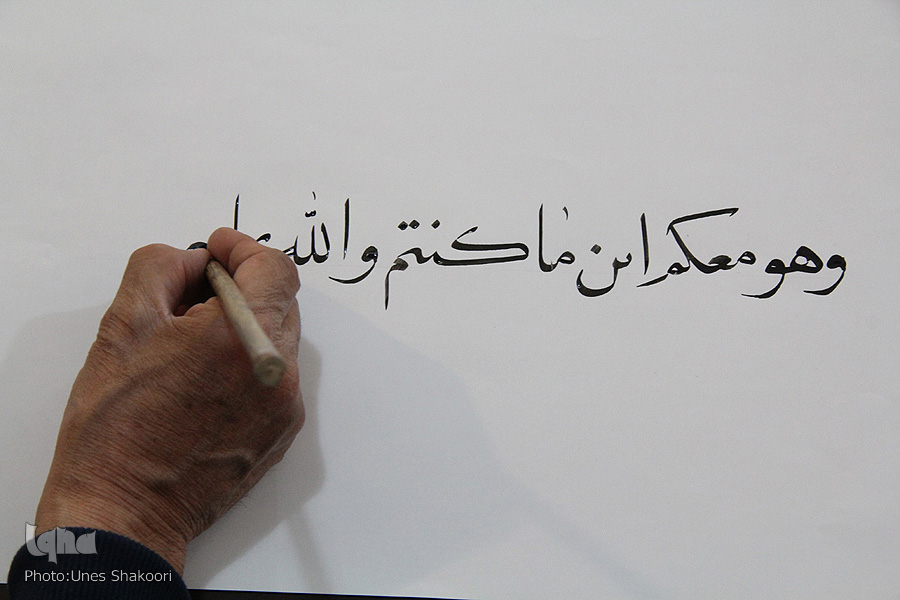 وهو معكم اين ما كنتم والله
iqna
Photo:Unes Shakoori